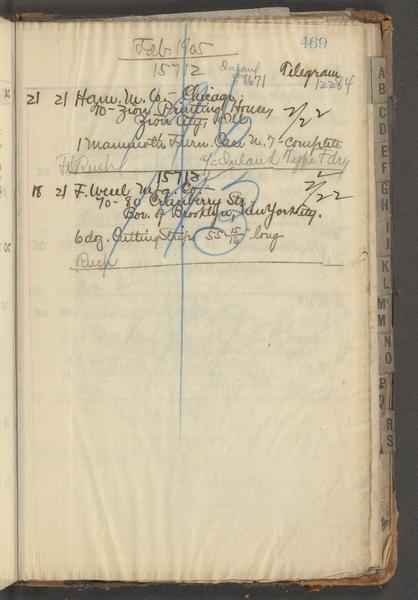 469
Feb. 1905
15712 Inland 8671 Telegram 12284
21 21 Ham. M. Co. - Chicago,
To - Zion Printing House, 2/22
Zion City, Ills.
1 Mammoth Furn. Case No. 7 - complete
Rush a/c Inland Type Fdry
15713
18 21 F. Wesel Mfg. Co. - 2/22
70-80 Cranberry Str.
Bor. of Brooklyn, New York City.
6 doz. Cutting Strips 55 15/16 long
Rush
A
B
C
D
E
F
G
H
I
J
K
L
M
M
N
O
P
Q
R
S